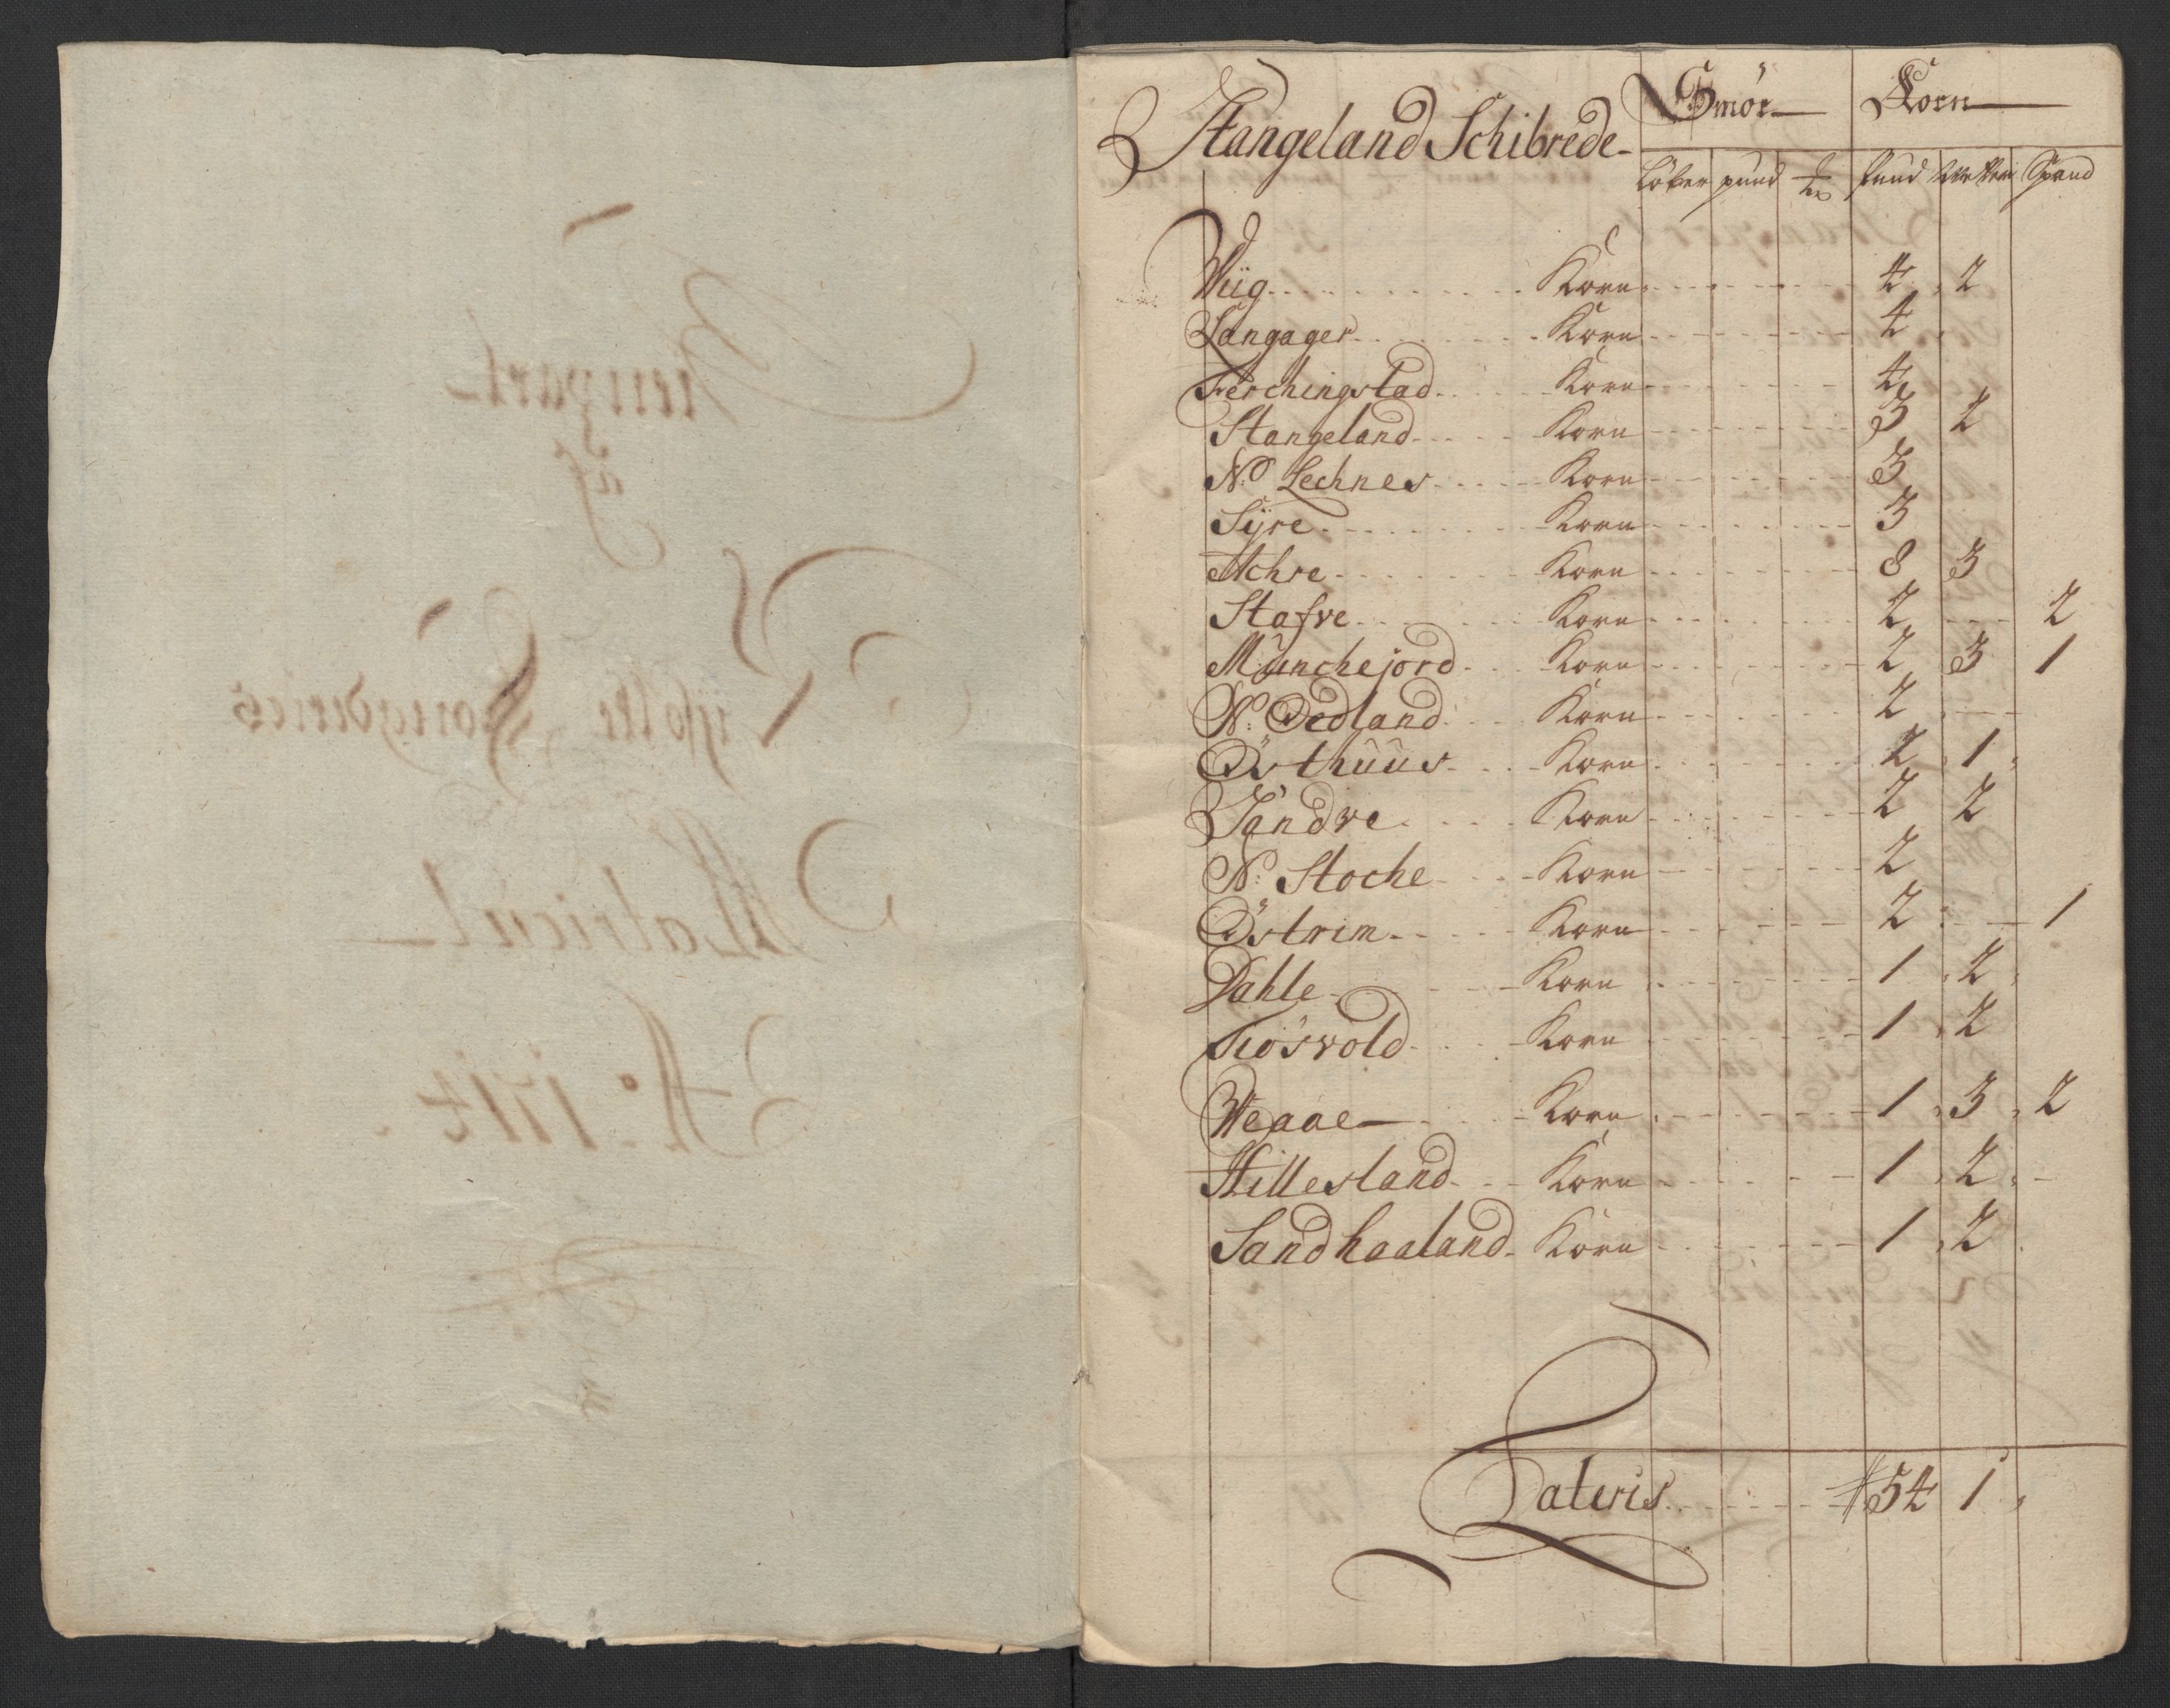 Stangeland Schibrede
Smör Korn
Löber pund Pund Spand
Wiig Korn 4 2
Langager Korn 4
Ferchingstad Korn 4
Stangeland Korn 3 2
N: Lechnes Korn 3
Syre Korn 3
Achre Korn 8 3
Stafve Korn 2 2
Munchejord Korn 2 3 1
N: Oedland Korn 2
Östhuus Korn 2 1
Sandve Korn 2 2
N: Stoche Korn 2
Östrim Korn 2 1
Dahle Korn 1 2
Tiösvold Korn 1 2
Weaae Korn 1 3 2
Hillesland Korn 1 2
Sandhaaland Korn 1 2
Lateris 54 1